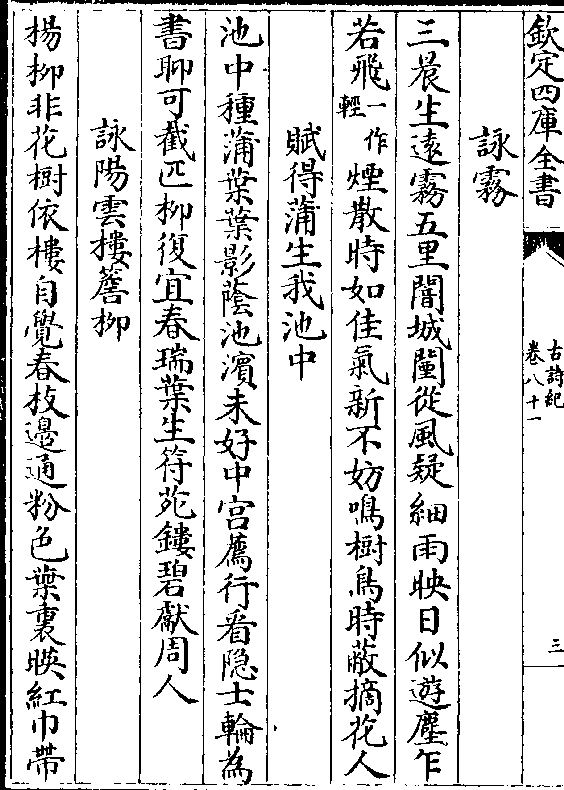 欽定四庫全書
古詩紀
卷八十一
三
詠霧
三晨生遠霧五里闇城闉從風疑細雨映日似遊塵乍
若飛一作輕煙散時如佳氣新不妨鳴樹鳥時蔽摘花人
賦得蒲生我池中
池中種蒲葉葉影蔭池濱未好中宮薦行看隠士輪為
書聊可截匹栁復宜春瑞葉生苻苑鏤碧獻周人
詠陽雲樓簷栁
楊栁非花樹依樓自覺春枝邊通粉色葉裏映紅巾帶